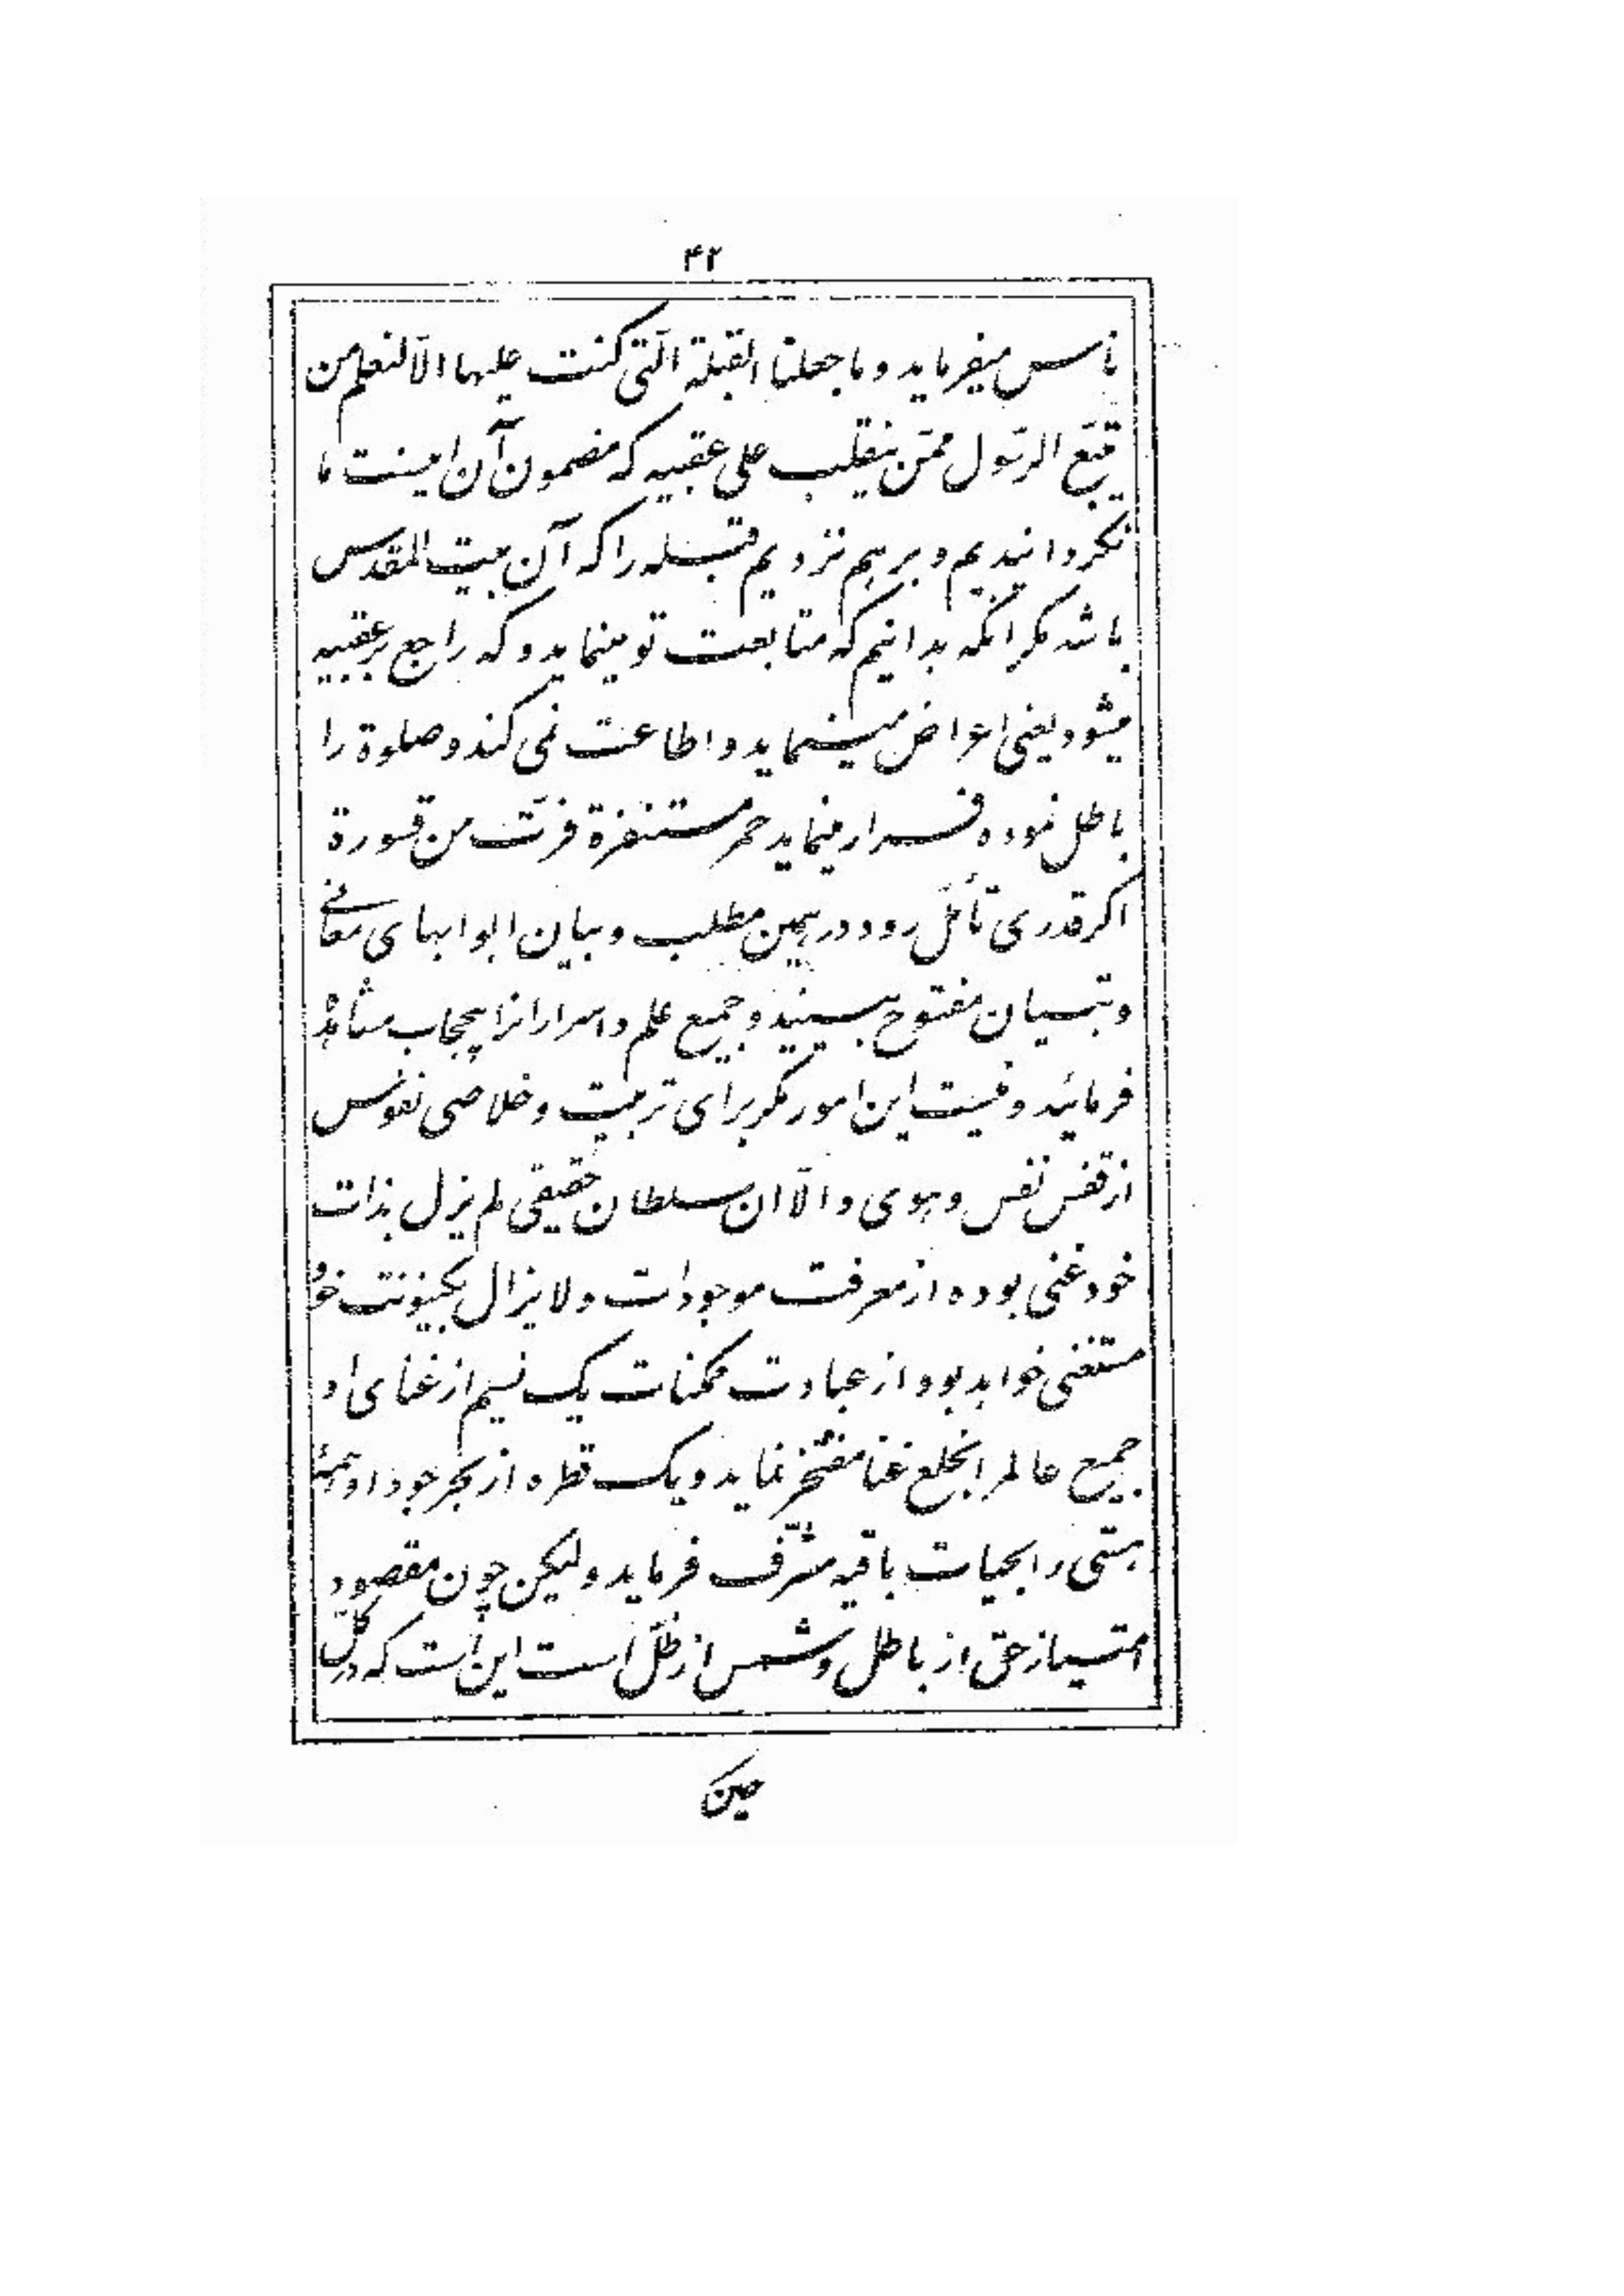 ۴۲
ناس میفرماید وما جعلنا القبلة الّتی کنت علیها الّا لنعلم من
یتّبع الرّسول ممّن ینقلب علی عقبیه که مضمون آن اینست ما
نکردانیدیم و برهم نزدیم قبله را که آن بیت المقدس
باشد مکر انکه بدانیم که متابعت تو مینماید و که راجع بر عقبیه
میشود یعنی اعراض مینماید و اطاعت نمی کند و صلوة را
باطل نموده فرار مینماید حمر مستنفرة فرّت من قسورة
اکر قدری تأمّل رود در همین مطلب و بیان ابوابهای معانی
و تبیان مفتوح بینید و جمیع علم و اسرار انرا بیحجاب مشاهده
فرمائید و نیست این امور مکر برای تربیت و خلاصی نفوس
از قفس نفس و هوی و الّا ان سلطان حقیقی لم یزل بذات
خود غنی بوده از معرفت موجودات و لا یزال بکینونت خود
مستغنی خواهد بود از عبادت ممکنات یک نسیم از غنای او
جمیع عالم را بخلع غنا مفتخر نماید و یک قطره از بحر جود او همهٔ
هستی را بحیات باقیه مشرّف فرماید ولیکن چون مقصود
امتیاز حق از باطل و شمس از ظلّ است این است که در کلّ
حین